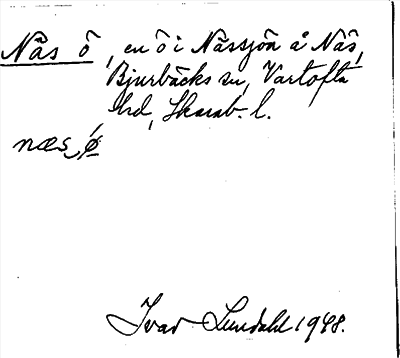 Näs ö, en ö i Nässjön å Näs,
Bjurbäcks sn, Vartofta
hd, Skarab. l.
næs ǿ
Ivar Lundahl 1948.